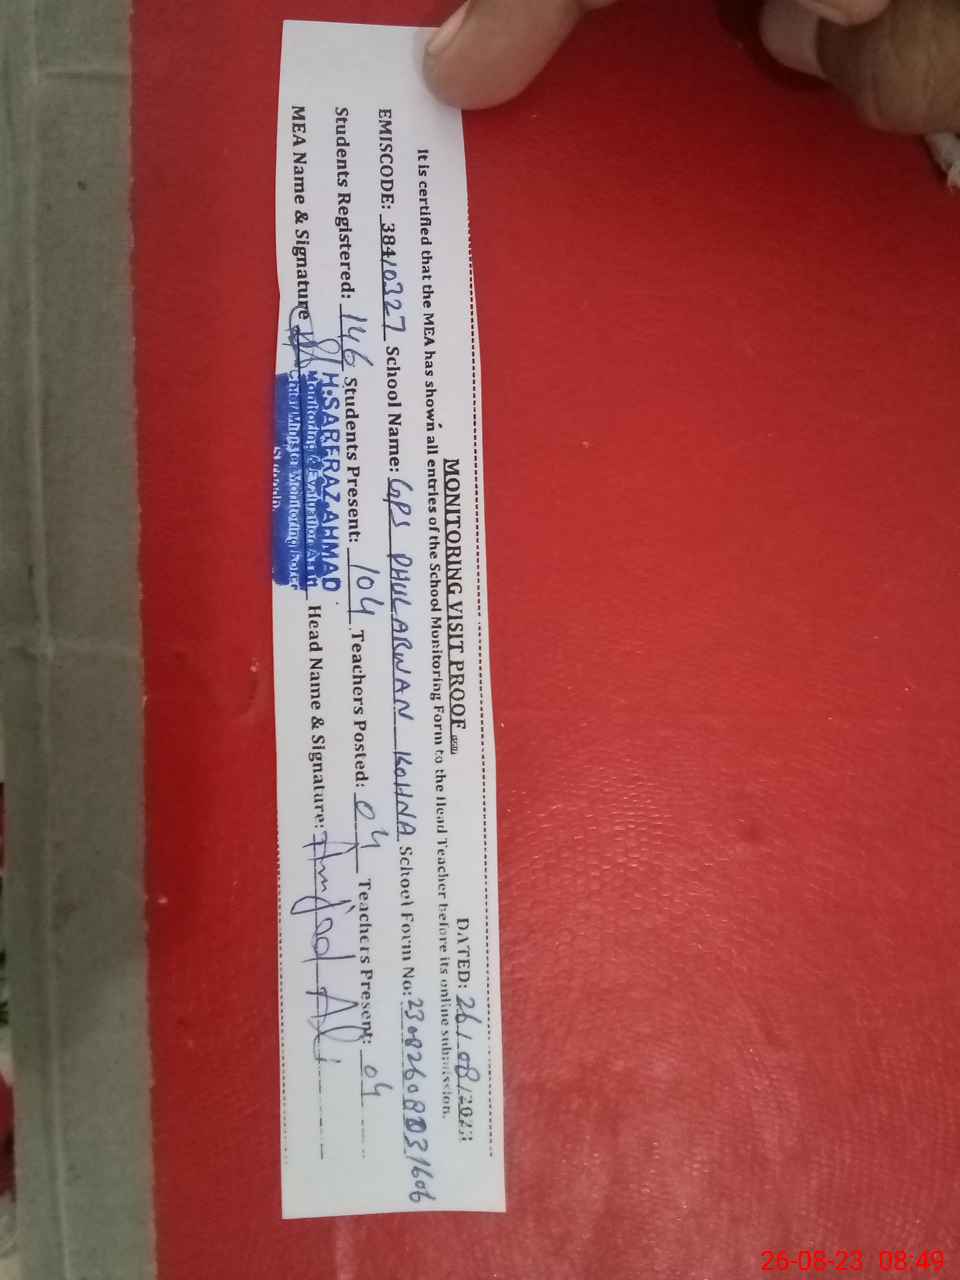 MONITORING VISIT PROOF
DATED: 26/08/2023
It is certified that the MEA has shown all entries of the School Monitoring Form to the Head Teacher before its online submission.
EMISCODE: 384/0327 School Name: GPS PHULARWAN KOHNA School Form No:
Students Registered: 146 Students Present: 104 Teachers Posted: 04 Teachers Present: 04
MEA Name & Signature Head Name & Signature: Amjad Ali
H.SARFRAZ AHMAD
Monitoring & Evaluation
Chief Minister Monitoring Force
26-08-23 08:49